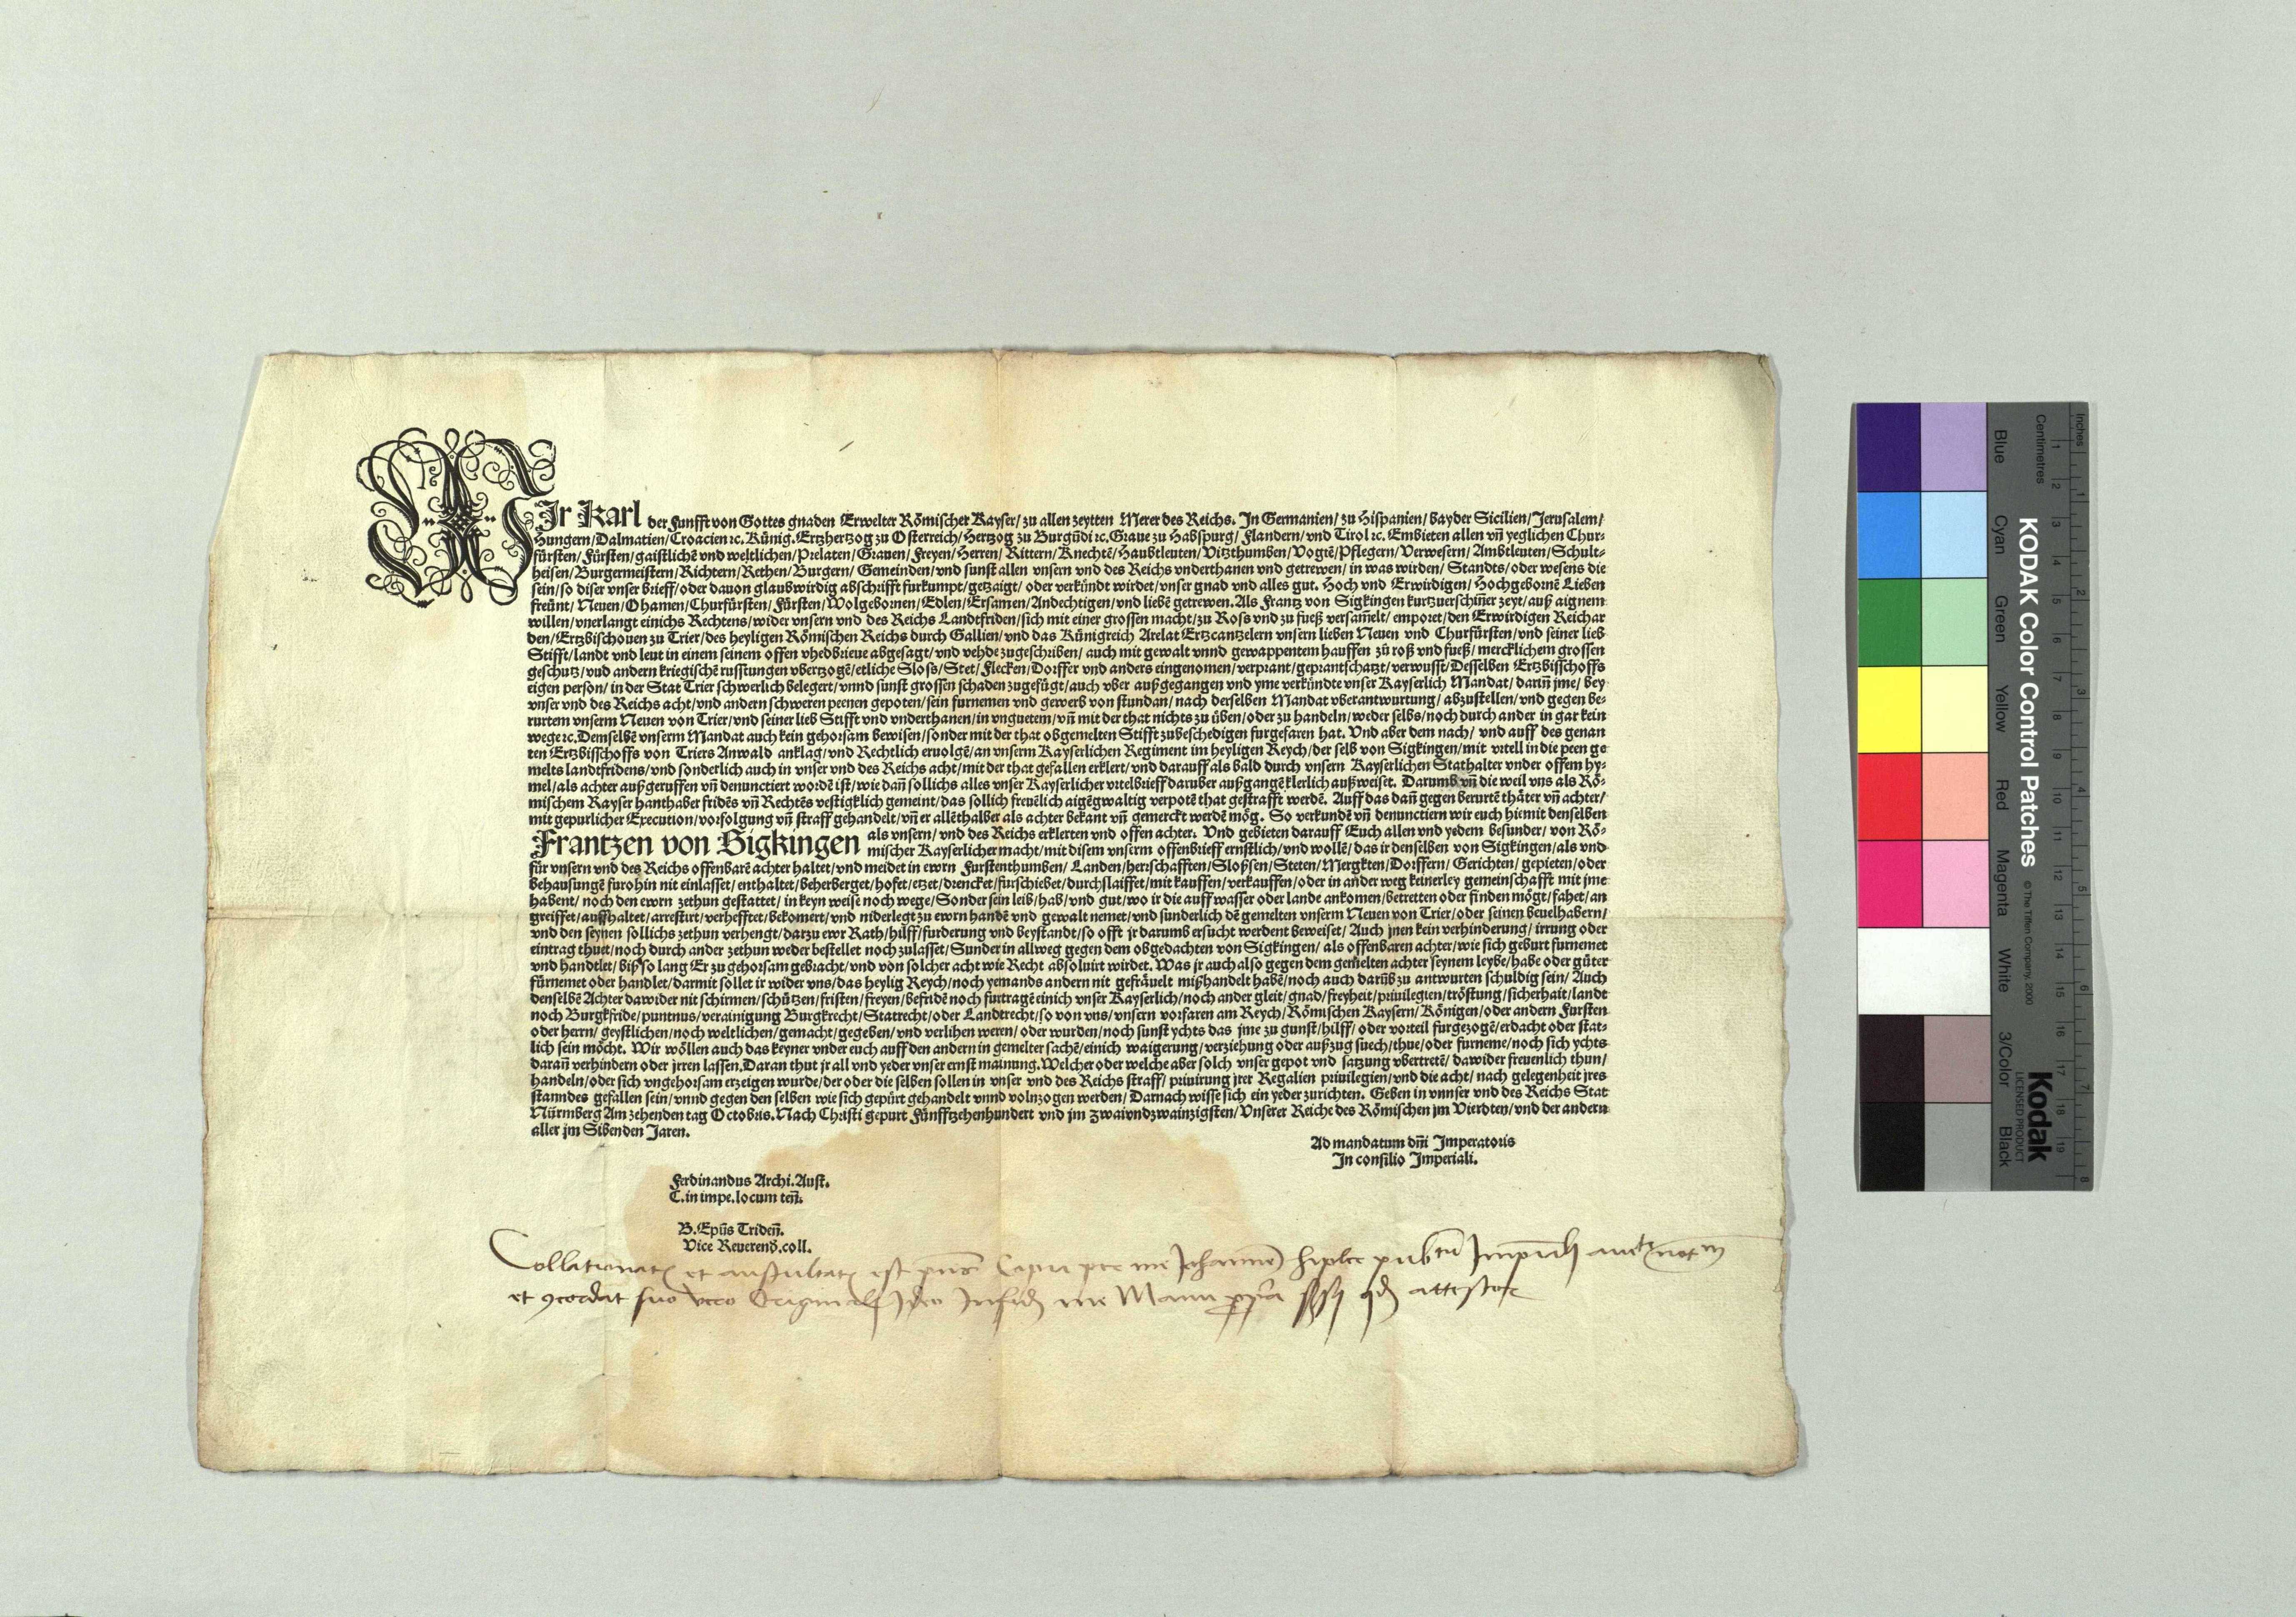 WIr Karl der Funfft von Gottes gnaden Erwelter Römischer Kayser/ zu allen zeytten Merer des Reichs. In Germanien/ zu Hispanien/ bayder Sicilien/ Jerusalem/
Hungern/Dalmatien/Croacien ꝛc. Künig. Ertzhertzog zu Osterreich/ Hertzog zu Burgūdi ꝛc. Graue zu Habspurg/ Flandern/ vnd Tirol ꝛc. Embieten allen vñ yeglichen Chur-
fürsten/ Fürsten/ gaistlichē vnd weltlichen/ Prelaten/ Grauen/ Freyen/ Herren/ Rittern/ Knechtē/ Haubtleuten/ Vitzthumben/ Vogtē/ Pflegern/ Verwesern/ Ambtleuten/ Schult-
heisen/ Burgermeistern/ Richtern/ Rethen/ Burgern/ Gemeinden/ vnd sunst allen vnsern vnd des Reichs vnderthanen vnd getrewen/ in was wirden/ Standts/ oder wesens die
sein/ so diser vnser brieff/ oder dauon glaubwirdig abschrifft furkumpt/ getzaigt/ oder verkündt wirdet/ vnser gnad vnd alles gut. Hoch vnd Erwirdigen/ Hochgebornē Lieben
freünt/ Neuen/ Ohamen/ Churfürsten/ Fürsten/ Wolgebornen/ Edlen/ Ersamen/ Andechtigen/ vnd liebē getrewen. Als Frantz von Sigkingen kurtzuerschiner zeyt/ auß aignem
willen/ vnerlangt einichs Rechtens/ wider vnsern vnd des Reichs Landtfriden/ sich mit einer grossen macht/ zu Ross vnd zu fueß versam̃elt/ emporet/ den Erwirdigen Reichar
den/ Ertzbischouen zu Trier/ des heyligen Römischen Reichs durch Gallien/ vnd das Künigreich Arelat Ertzcantzelern vnsern lieben Neuen vnd Churfürsten/ vnd seiner lieb
Stifft/ landt vnd leut in einem seinem offen vhedbrieue abgesagt/ vnd vehde zugeschriben/ auch mit gewalt vnnd gewappentem hauffen zů roß vnd fueß/ mercklichem grossen
geschutz/ vnd andern kriegischē russtungen vbertzogē/ etliche Sloss/ Stet/ Flecken/ Dorffer vnd anders eingenomen/ verprant/ geprantschatzt/ verwusst/ Desselben Ertzbisschoffs
eigen person/ in der Stat Trier schwerlich belegert/ vnnd sunst grossen schaden zugefügt/ auch vber außgegangen vnd yme verkündte vnser Kayserlich Mandat/ dariñ jme/ bey
vnser vnd des Reichs acht/ vnd andern schweren peenen gepoten/ sein furnemen vnd gewerb von stundan/ nach derselben Mandat vberantwurtung/ abzustellen/ vnd gegen be-
rurtem vnserm Neuen von Trier/ vnd seiner lieb Stifft vnd vnderthanen/ in vnguetem/ vñ mit der that nichts zu üben/ oder zu handeln/ weder selbs/ noch durch ander in gar kein
wege ꝛc. Demselbē vnserm Mandat auch kein gehorsam bewisen/ sonder mit der that obgemelten Stifft zubeschedigen furgefaren hat. Vnd aber dem nach/ vnd auff des genan
ten Ertzbisschoffs von Triers Anwald anklag/ vnd Rechtlich eruolgē/ an vnserm Kayserlichen Regiment im heyligen Reych/ der selb von Sigkingen/ mit vrtell in die peen ge
melts landtfridens/ vnd sonderlich auch in vnser vnd des Reichs acht/ mit der that gefallen erklert/ vnd darauff als bald durch vnsern Kayserlichen Stathalter vnder offem hy-
mel/ als achter außgeruffen vñ denunctiert wordē ist/ wie dañ sollichs alles vnser Kayserlicher vrtelbrieff daruber außgangē klerlich außweiset. Darumb vñ die weil vns als Rö-
mischem Kayser hanthaber fridēs vñ Rechtēs vestigklich gemeint/ das sollich freuēlich aigēgwaltig verpotē that gestrafft werdē. Auff das dañ gegen berurtē thäter vñ achter/
mit gepurlicher Execution/ voꝛfolgung vñ straff gehandelt/ vñ er allēthalber als achter bekant vñ gemerckt werdē mög. So verkundē vñ denunctiern wir euch hiemit denselben
Frantzen von Sigkingen als vnsern/ vnd des Reichs erklerten vnd offen achter. Vnd gebieten darauff Euch allen vnd yedem besunder/ von Rö-
mischer Kayserlicher macht/ mit disem vnserm offenbrieff ernstlich/ vnd wollē/ das ir denselben von Sigkingen/ als vnd
für vnsern vnd des Reichs offenbarē achter haltet/ vnd meidet in ewrn Furstenthumben/ Landen/ herschafften/ Sloßsen/ Steten/ Mergkten/ Dorffern/ Gerichten/ gepieten/ oder
behausungē furohin nit einlasset/ enthaltet/ beherberget/ hofet/ etzet/ drencket/ furschiebet/ durchslaiffet/ mit kauffen/ verkauffen/ oder in ander weg keinerley gemeinschafft mit jme
habent/ noch den ewrn zethun gestattet/ in keyn weise noch wege/ Sonder sein leib/ hab/ vnd gut/ wo ir die auff wasser oder lande ankomen/ betretten oder finden mögt/ fahet/ an
greiffet/ auffhaltet/ arrestirt/ verhefftet/ bekomert/ vnd niderlegt zu ewrn handē vnd gewalt nemet/ vnd sunderlich dē gemelten vnserm Neuen von Trier/ oder seinen beuelhabern/
vnd den seynen sollichs zethun verhengt/ dartzu ewr Rath/ hilff/ furderung vnd beystandt/ so offt jr darumb ersucht werdent beweiset/ Auch jnen kein verhinderung/ irrung oder
eintrag thuet/ noch durch ander zethun weder bestellet noch zulasset/ Sunder in allweg gegen dem obgedachten von Sigkingen/ als offenbaren achter/ wie sich geburt furnemet
vnd handtlet/ biß so lang Er zu gehorsam gebracht/ vnd von solcher acht wie Recht absoluirt wirdet. Was jr auch also gegen dem gemelten achter seynem leybe/ habe oder güter
fürnemet oder handlet/ darmit sollet ir wider vns/ das heylig Reych/ noch yemands andern nit gefräuelt mißhandelt habē/ noch auch darūb zu antwurten schuldig sein/ Auch
denselbē Achter dawider nit schirmen/ schützen/ fristen/ freyen/ befridē noch furtragē einich vnser Kayserlich/ noch ander gleit/ gnad/ freyheit/ priuilegien/ tröstung/ sicherhait/ landt
noch Burgkfride/ puntnus/ verainigung Burgkrecht/ Statrecht/ oder Landtrecht/ so von vns/ vnsern vorfaren am Reych/ Römischen Kaysern/ Königen/ oder andern Fursten
oder herrn/ geystlichen/ noch weltlichen/ gemacht/ gegeben/ vnd verlihen weren/ oder wurden/ noch sunst ychts das jme zu gunst/ hilff/ oder vorteil furgezogē/ erdacht oder stat-
lich sein möcht. Wir wöllen auch das keyner vnder euch auff den andern in gemelter sachē/ einich waigerung/ verziehung oder außzug suech/ thue/ oder furneme/ noch sich ychts
darañ verhindern oder jrren lassen. Daran thut jr all vnd yeder vnser ernst mainung. Welcher oder welche aber solch vnser gepot vnd satzung vbertretē/ dawider freuenlich thun/
handeln/ oder sich vngehorsam erzeigen wurde/ der oder die selben sollen in vnser vnd des Reichs straff/ priuirung jrer Regalien priuilegien/ vnd die acht/ nach gelegenheit jres
stanndes gefallen sein/ vnnd gegen den selben wie sich gepürt gehandelt vnnd volnzogen werden/ Darnach wisse sich ein yeder zurichten. Geben in vnnser vnd des Reichs Stat
Nürmberg Am zehenden tag Octobris. Nach Christi gepurt Fünfftzehenhundert vnd jm zwaivndzwainzigsten/ Vnserer Reiche des Römischen jm Vierdten/ vnd der andern
aller jm Sibenden Jaren.
Ad mandatum dñi Imperatoris
In consilio Imperiali.
Ferdinandus Archi. Aust.
C. in impe. locum teñ.
B. Epūs Trideñ.
Vice Reuerend. coll.
Collationat et auscultat est pñs Copia per me Johannem publicum
et concordat suo vero Originali Ideo me Manu propria attestor
KODAK Color Control Patches © The Tiffen Company, 2000
Kodak
LICENSED PRODUCT
Inches
Centimetres
Blue Cyan Green Yellow Red Magenta White 3/Color Black
1 2 3 4 5 6 7 8 9 10 11 12 13 14 15 16 17 18 19
1 2 3 4 5 6 7 8